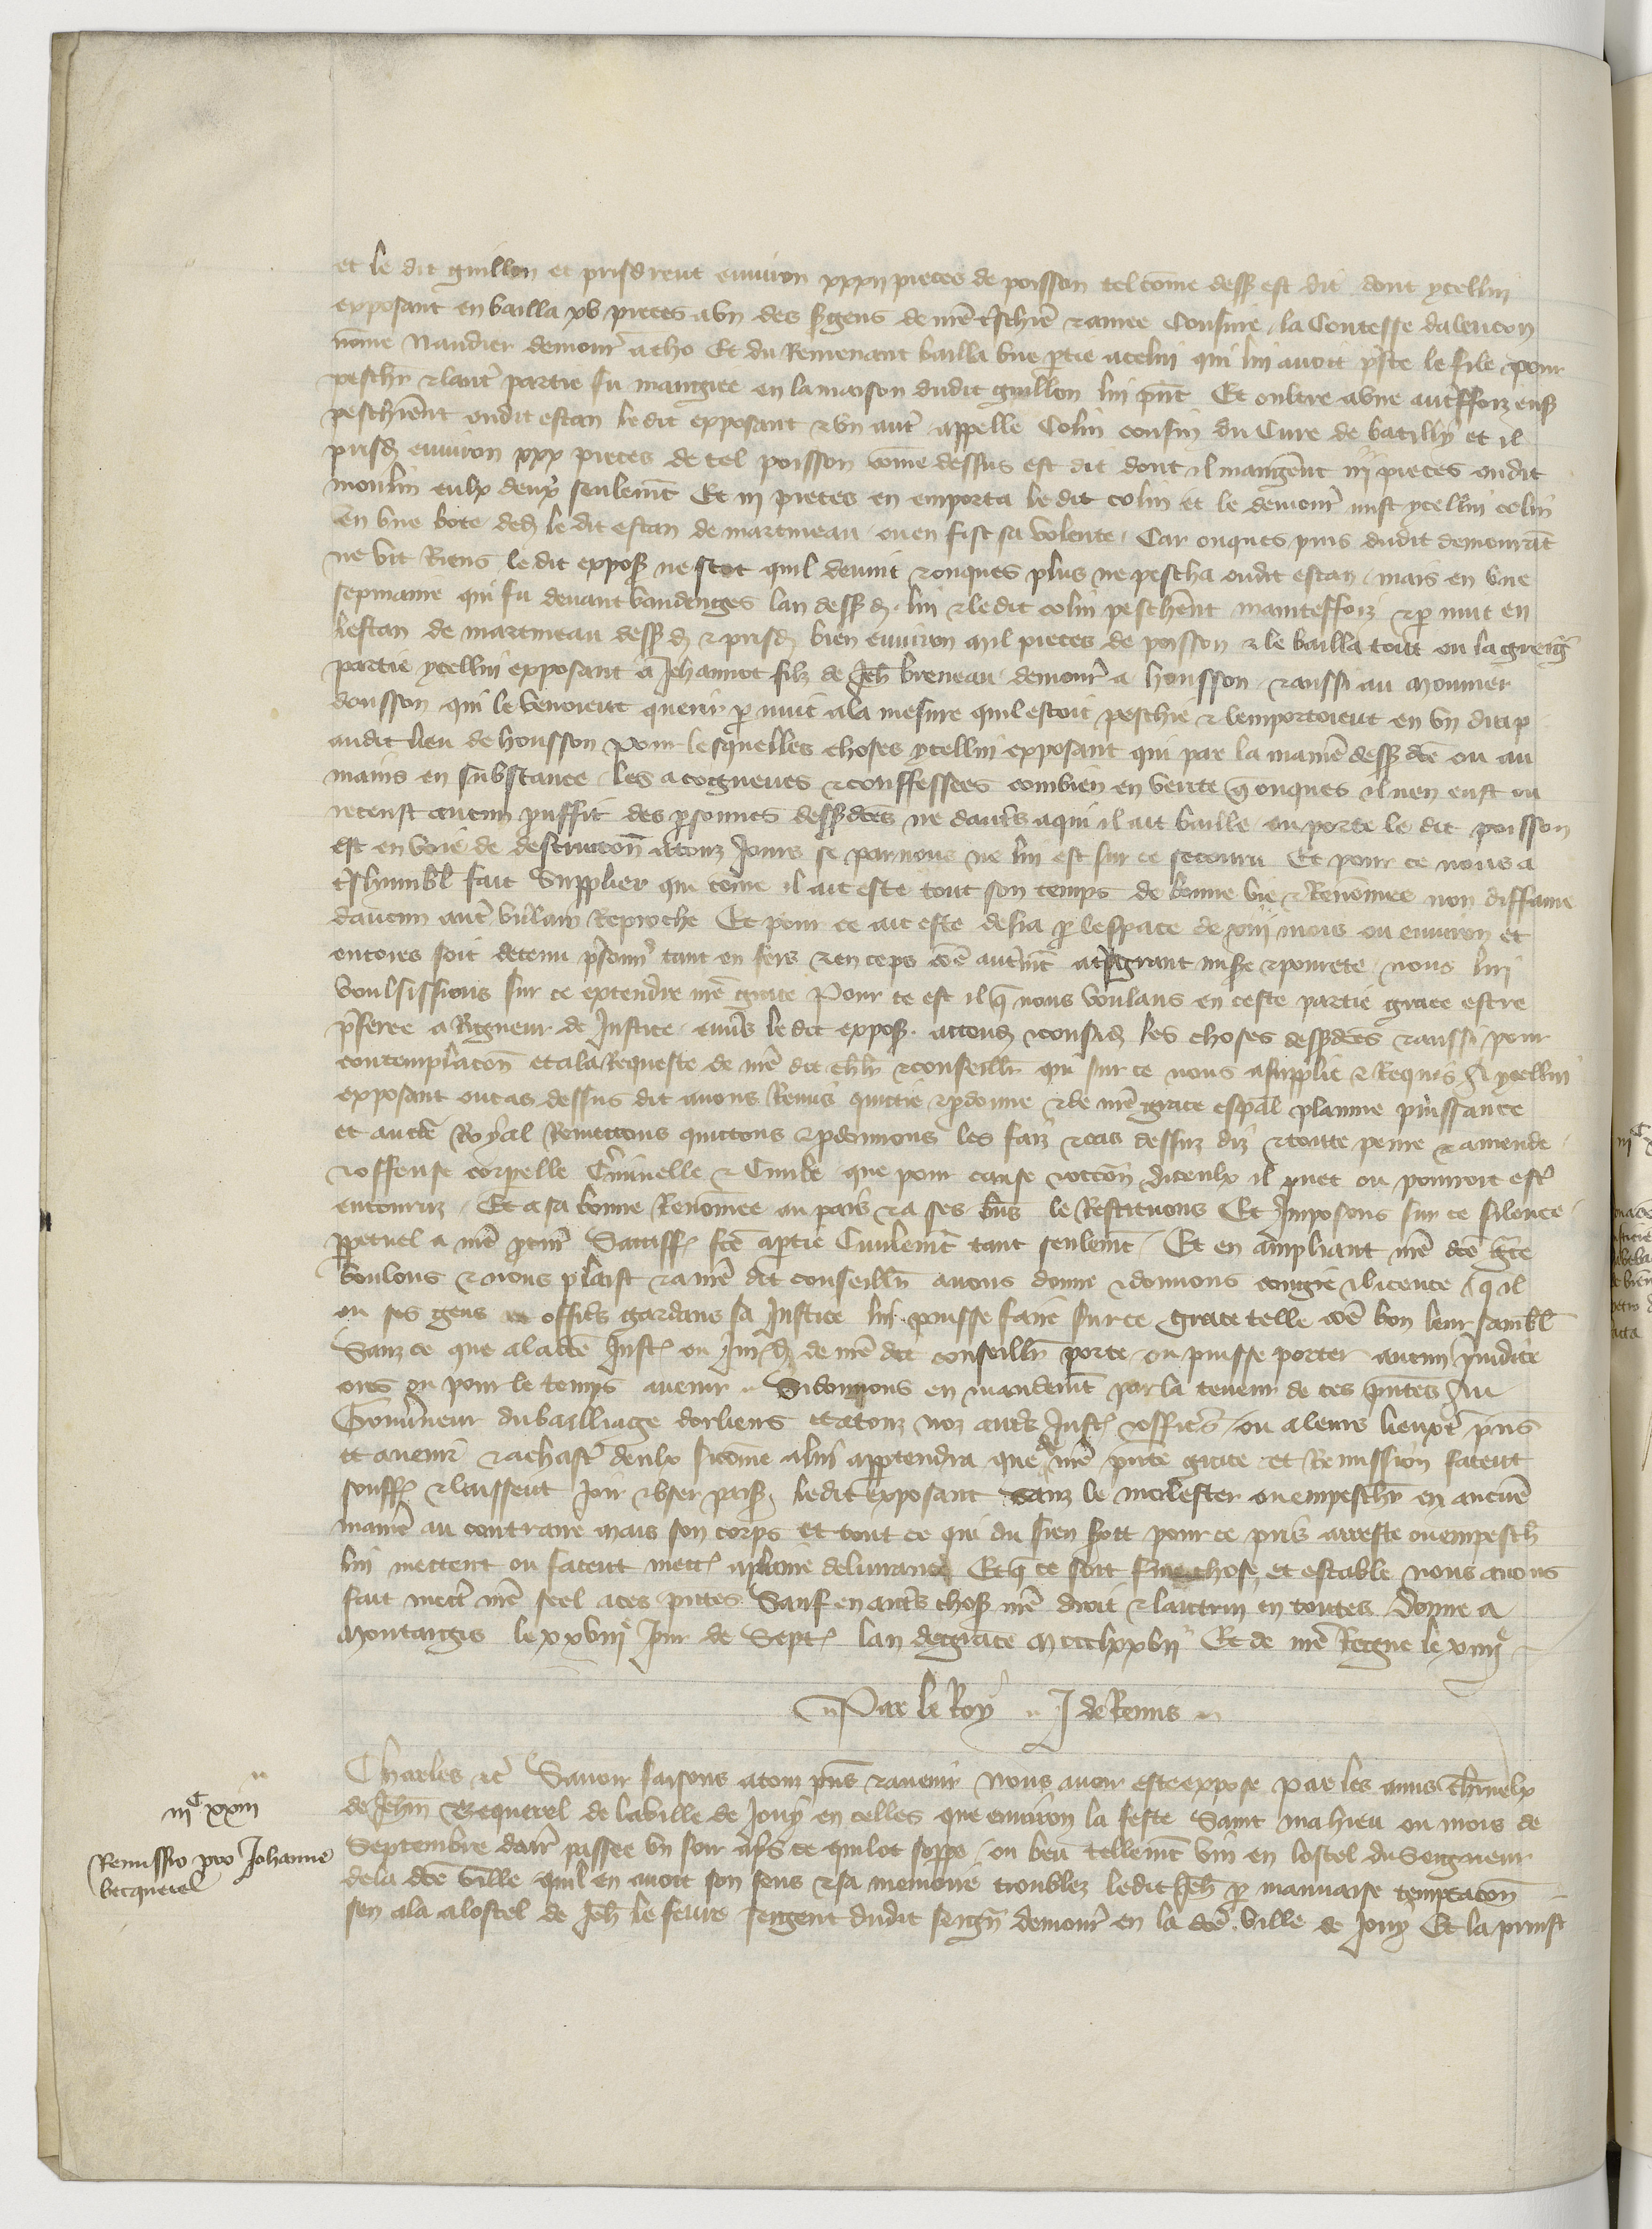 et le dit guillon et prisdrent environ xxxii pieces de poisson tel come dess9 est dit dont ycellui
exposant en bailla xv pieces a un des sgens de nre tschiere & amee Cousine la Contesse dalencon
nome Naudier demour atho Et du Remenant bailla une ptie a celui qui lui avoit pste le file pour
peschr & lautr partie fu mangiee en la maison dudit guillon lui pnt Et oultre a une autrffoiz ens
peschierent oudit estan ledit exposant & un autr appelle Colin cousin du Cure de batilly et il
prisd environ xxx pieces de tel poisson come dessus est dit dont il mangerent iiii pieces oudit
moulin eulx deux seulemt Et iii pieces en emporta le dit colin et le demour mist ycellui colin
en une bote deds le dit estan de martineau ou en fist sa volente Car onques puis dudit demourat
ne vit Riens le dit expos ne scet quil devint & onques plus ne pescha oudit estan mais en une
sepmaine qui fu devant vandenges lan dess9 d. lui & ledit colin peschrent mainteffoiz & p nuit en
lestan de martineau dess9 d & prisd bien environ mil pieces de poisson & le bailla tout ou la greig
partie ycellui exposant a Jehannot filz de Jeh breneau demour a housson & aussi au mounier
dousson qui le venoient querir p nuit a la mesure quil estoit peschie & lemportoient en un drap
audit lieu de housson Pour lesquelles choses ycellui exposant qui par la maniere dess9 dte ou au
mains en substance les a cogneues & confessees combien en verite q onques il nen eust ou
receust aucun prouffit des psonnes dess9dtes ne dautrs a qui il ait baille ou porte le dit poisson
est en voie de destructon a tonz Jours se par nous ne lui est sur ce secouru Et pour ce nous a
tshumbl fait Supplier que come il ait este tout son temps de bonne vie & Renomee non diffame
daucun autr vilain Reproche Et pour ce ait este desia p lespace de xiii mois ou environ et
encores soit detenu psonnr tant en fers & en ceps coe autremt a tsgrant misre & povrete nous lui
voulsissions sur ce extendre nre grace Pour ce est il q nous voulans en ceste partie grace estre
pferee a Rigueur de Justice envrs le dit expos. attend & consid les choses dessdtes & aussi pour
contemplacon et a la Requeste de nre dit chlr & conseillr qui sur ce nous a supplie & Requis A ycellui
exposant ou cas dessus dit avons Remis quictie & pdonne & de nre grace espal plaine puissance
et aucte Royal Remettons quictons & pdonnons les faiz & cas dessuz diz & toute peine & amende
& offense corpelle Criminelle & Civile que pour cause & occon diceulx il puet ou pourroit estr
encouruz Et a sa bonne Renomee au pais & a ses bns le Restituons Et Imposons sur ce silence
ppetuel a nre pcur Satiff fce a ptie Civilemt tant seulemt Et en ampliant nre dte gce
voulons & nous plaist & a nre dit conseillr avons donne & donnons congie & licence q il
ou ses gens & officrs gardans sa Justice lui puisse faire sur ce grace telle coe bon leur sambl
Sanz ce que a ladte Just ou Jurid de nre dit conseillr porte ou puisse porter aucun pjudice
ores ou pour le temps avenir Si donnons en mandemt par la teneur de ces pntes Au
Gouvrneur du bailliage dorliens et a tonz noz autrs Just & officrs ou a leurs lieuxtr pns
et avenir & a chastr deulx sicome a lui apptendra que de nre pnte grace et Remission facent
souffr & laissent joir & user paisib ledit exposant sanz le molester ou empeschr en aucune
maniere au contraire mais son corps et tout ce qui du sien soit pour ce pris arreste ou empesch
lui mettent ou facent mectr a plaine delivrance Et q ce soit ferme chose et estable nous avons
fait mectr nre seel a ces pntes Sauf en autrs chos nre droit & lautruy en toutes Donne a
Montargis le xxviiie Jour de Sept lan de grace Mccclxxvii Et de nre Regne le xiiiie
Par le Roy J de Remis
iiic xxiii
Remissio pro Johanne
becquerel
Charles etc Savoir faisons a tonz pns & avenir Nous avoir este expose par les amis charnelx
de Jehan Bequerel de la ville de Jouy en celles que environ la feste Saint mahieu ou mois de
Septembre dairr passee un soir aps ce quil ot soppe ou beu tellemt vin en lostel du Seigneur
de la dte ville quil en avoit son sens & sa memoire troublez ledit Jeh p mauvaise temptacon
sen ala a lostel de Jeh le fevre sergent dudit seign demour en la dte ville de Jouy Et la prinst